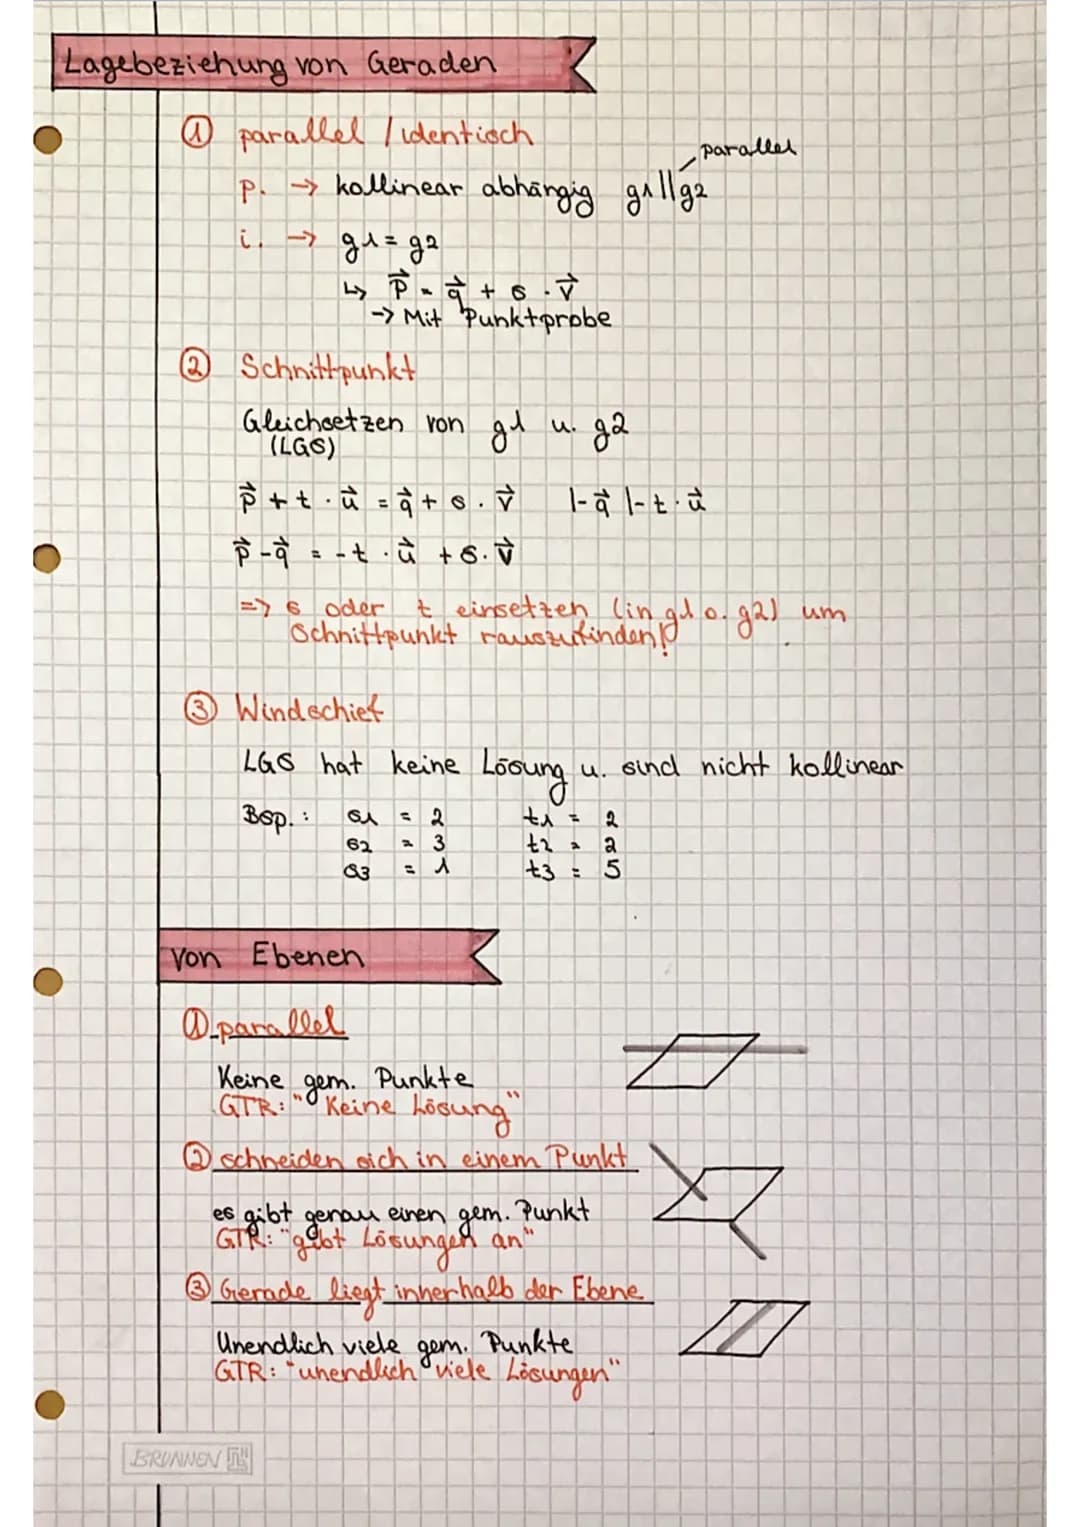 Lagebeziehung von Geraden
① parallel / identisch
parallel
p. → kollinear abhängig g1 || g2
i. → g1 = g2
↳ p⃗ = q⃗ + s · v⃗
→ Mit Punktprobe
② Schnittpunkt
Gleichsetzen von g1 u. g2
(LGS)
p⃗ + t · u⃗ = q⃗ + s · v⃗ |-q⃗ |-t · u⃗
p⃗ - q⃗ = -t · u⃗ + s · v⃗
=> s oder t einsetzen (in g1 o. g2) um
Schnittpunkt rauszufinden!
③ Windschief
LGS hat keine Lösung u. sind nicht kollinear
Bsp.: s1 = 2 t1 = 2
s2 = 3 t2 = 2
s3 = 1 t3 = 5
von Ebenen
① parallel
Keine gem. Punkte
GTR: "Keine Lösung"
② schneiden sich in einem Punkt
es gibt genau einen gem. Punkt
GTR: "gibt Lösungen an"
③ Gerade liegt innerhalb der Ebene
Unendlich viele gem. Punkte
GTR: "unendlich viele Lösungen"
BRUNNEN